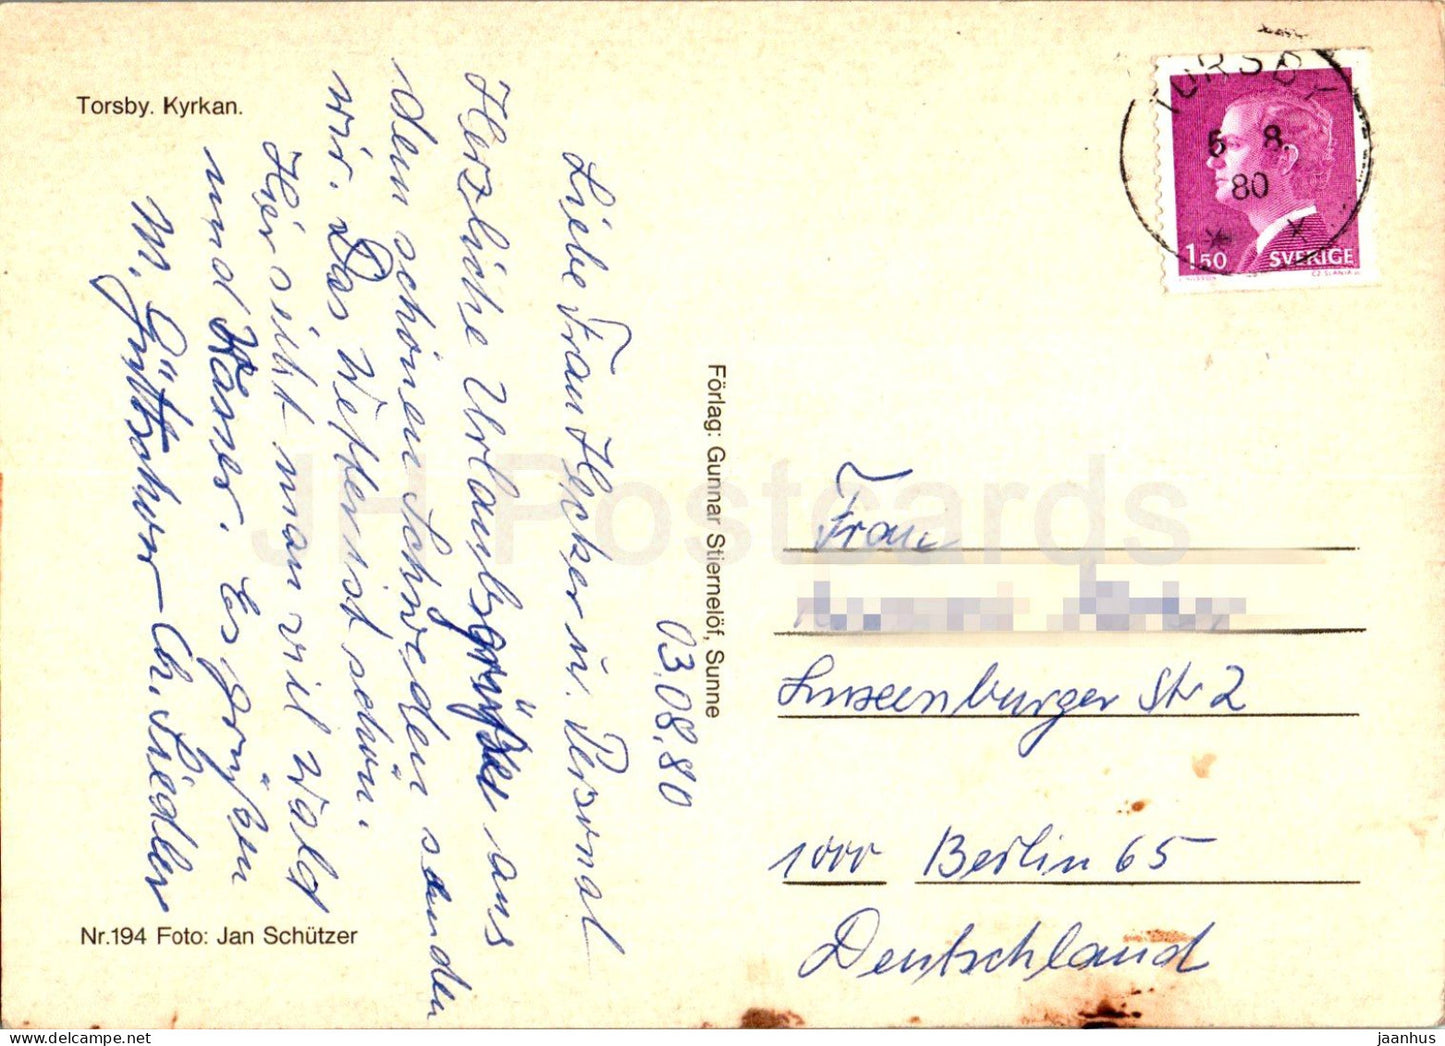 Torsby. Kyrkan.
03.08.80
Liebe Frau Hecker u. Personal
Herzliche Urlaubsgrüße aus
dem schönen Schweden senden
wir. Das Wetter ist schön.
Hier seht man viel Wald
und Wasser. Es grüßen
M. Güttschwr Ch. Siedler
Nr.194 Foto: Jan Schützer
Förlag: Gunnar Stiernelöf, Sunne
TORSBY
5 8.
80
1 50 SVERIGE
Frau
Luxemburger Str 2
1000 Berlin 65
Deutschland
JH Postcards
jaanhus